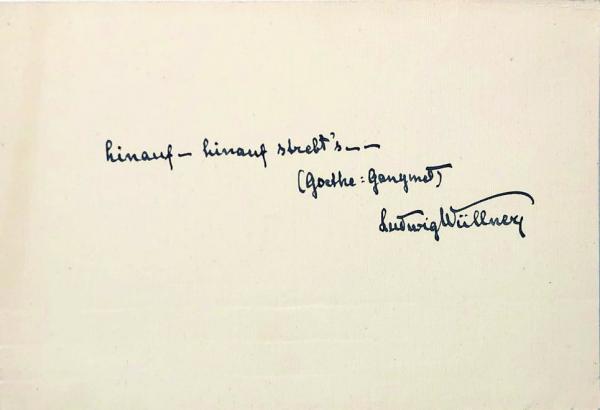 hinauf – hinauf strebt's – –
(Goethe: Ganymed)
Ludwig Wüllner